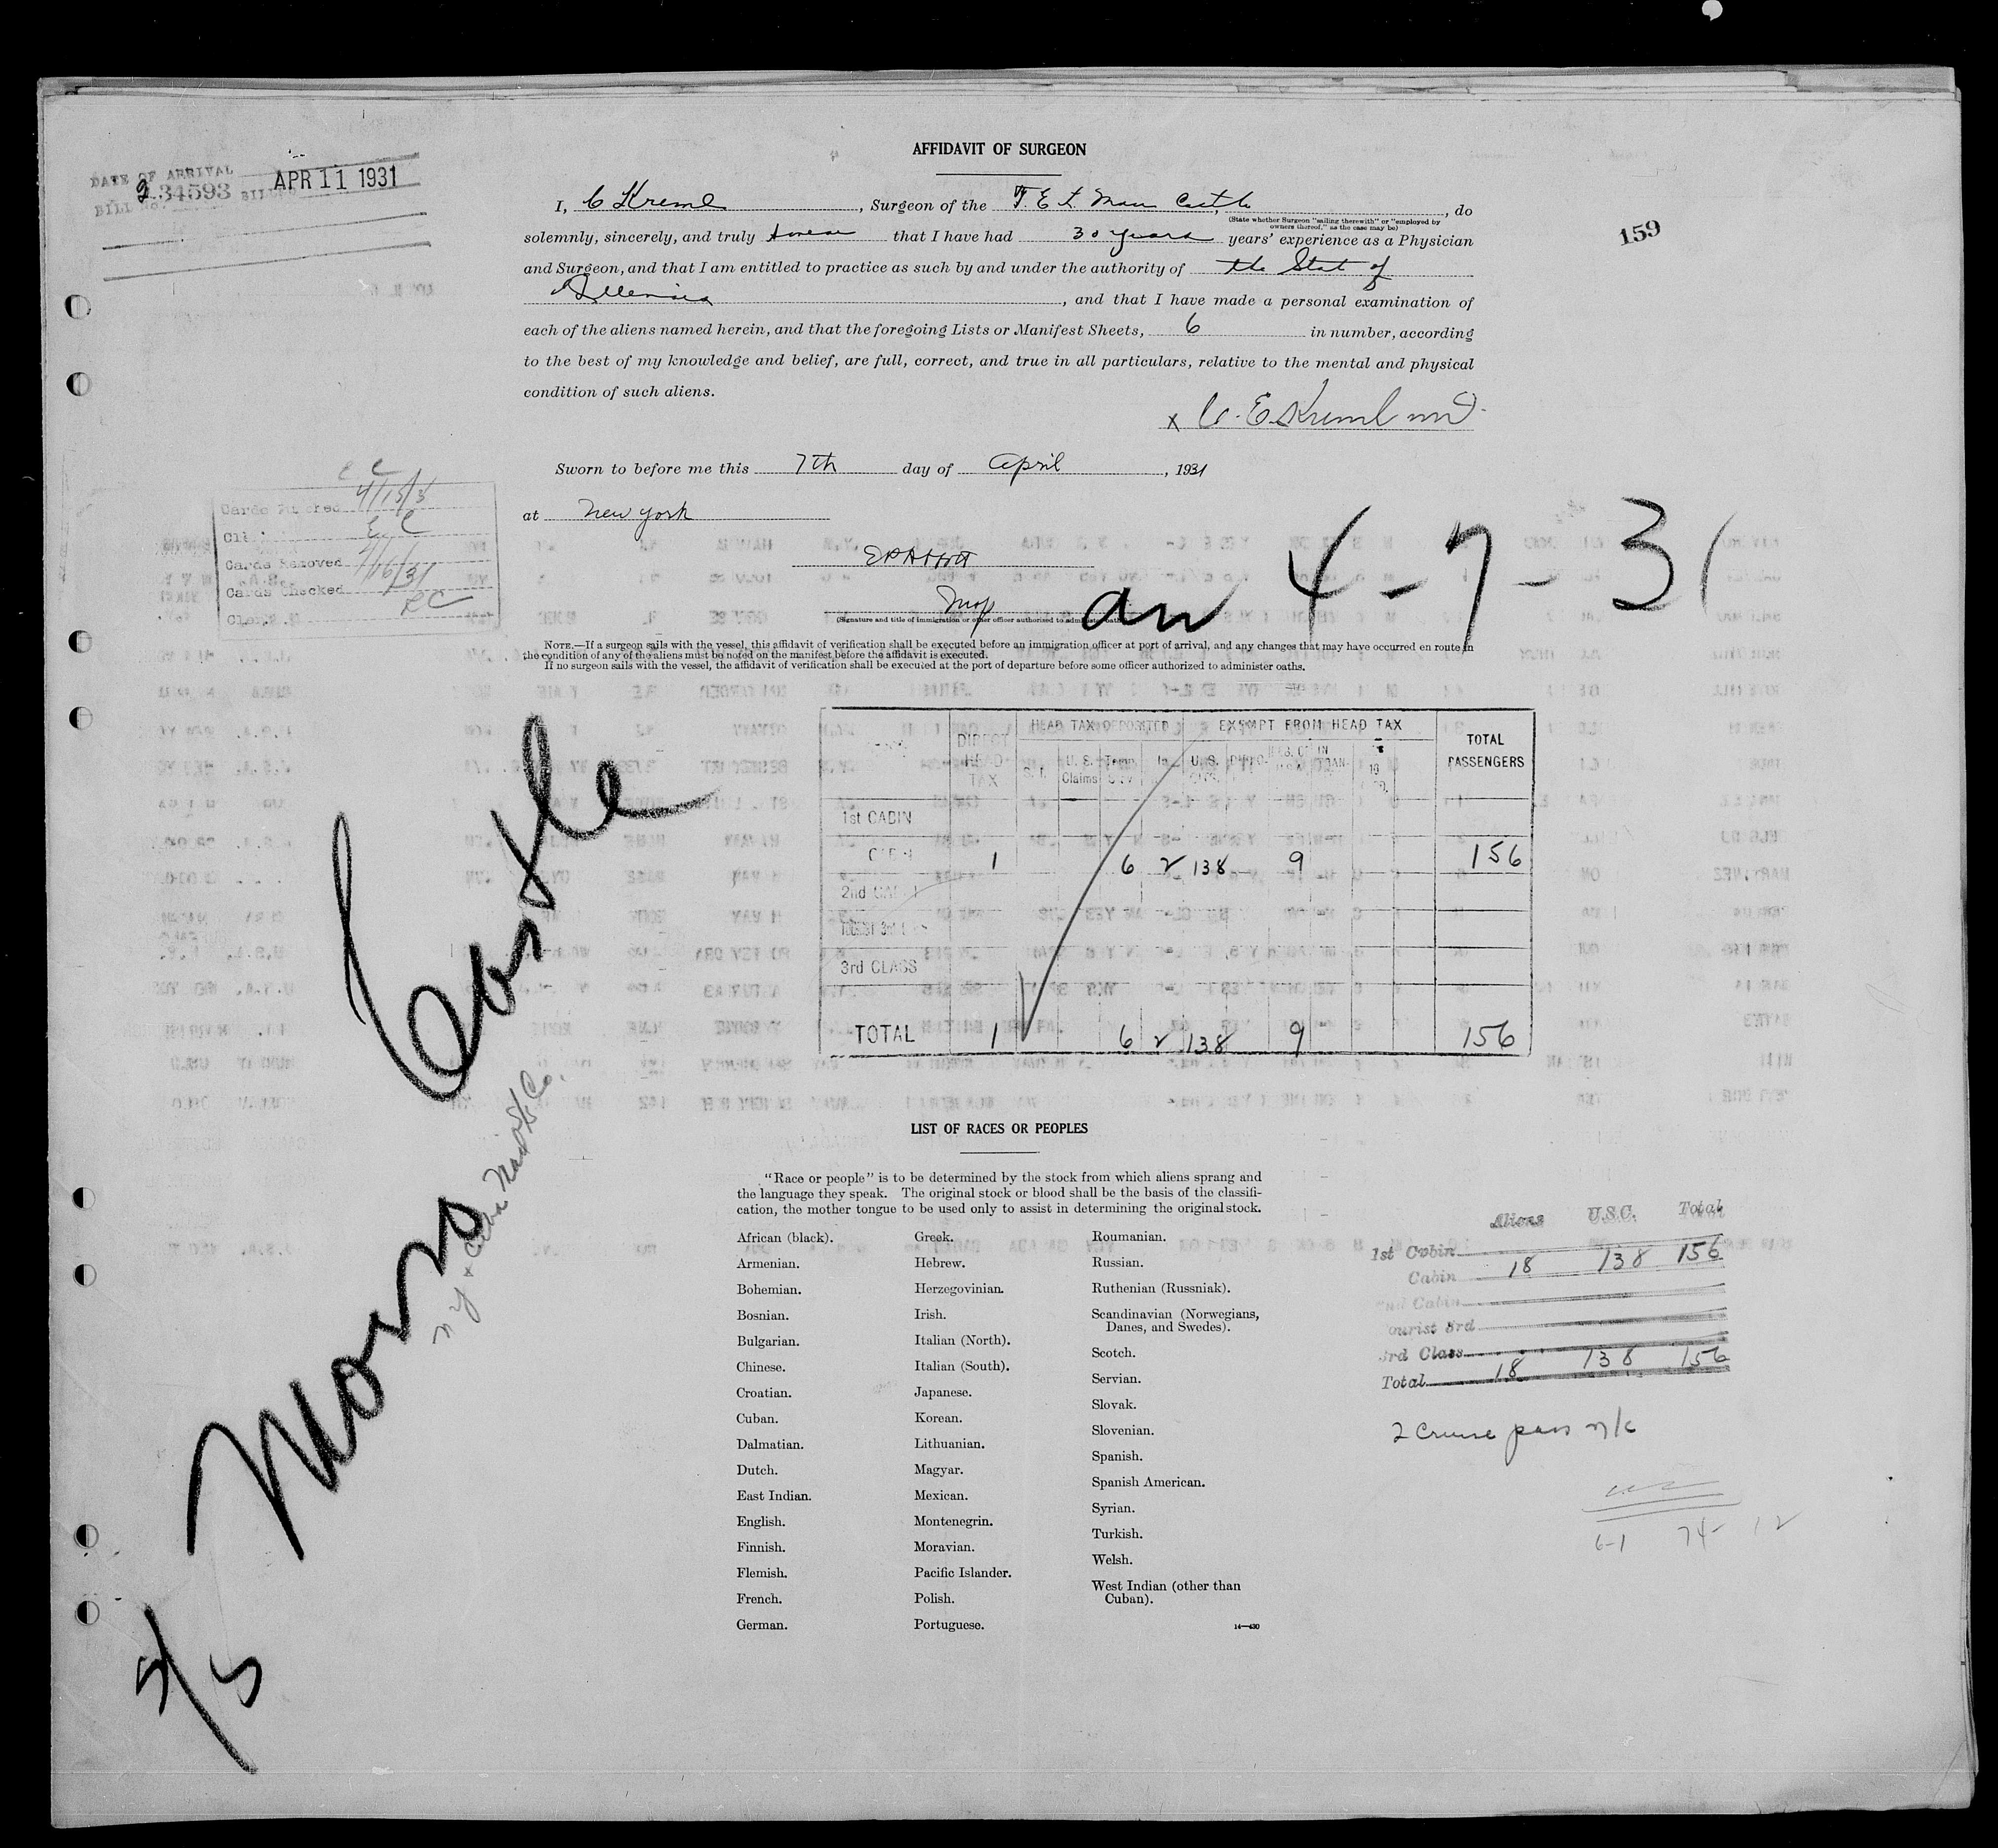 AFFIDAVIT OF SURGEON
DATE OF ARRIVAL APR 11 1931
34593
159
I, C Kreml, Surgeon of the T.E.L. Morro Castle, do
(State whether Surgeon "sailing therewith" or "employed by
owners thereof," as the case may be)
solemnly, sincerely, and truly swear that I have had 30 years years' experience as a Physician
and Surgeon, and that I am entitled to practice as such by and under the authority of the Stat of
, and that I have made a personal examination of
each of the aliens named herein, and that the foregoing Lists or Manifest Sheets, 6 in number, according
to the best of my knowledge and belief, are full, correct, and true in all particulars, relative to the mental and physical
condition of such aliens.
x C. E. Kreml MD.
Sworn to before me this 7th day of April, 1931
at New York
an 4-7-31
(Signature and title of immigration or other officer authorized to administer oath)
NOTE.—If a surgeon sails with the vessel, this affidavit of verification shall be executed before an immigration officer at port of arrival, and any changes that may have occurred en route in
the condition of any of the aliens must be noted on the manifest before the affidavit is executed.
If no surgeon sails with the vessel, the affidavit of verification shall be executed at the port of departure before some officer authorized to administer oaths.
Cards Attached 4/15/31
E C
Cards Removed 4/16/31
Cards Checked
Clerk
Morro Castle
5/5
DIRECT HEAD TAX
HEAD TAX DEPOSITED
EXEMPT FROM HEAD TAX
TOTAL PASSENGERS
U. S. Claims
1st CABIN
CABIN 1 6 2 138 9 156
2nd CABIN
3rd CLASS
TOTAL 1 6 2 138 9 156
LIST OF RACES OR PEOPLES
"Race or people" is to be determined by the stock from which aliens sprang and
the language they speak. The original stock or blood shall be the basis of the classifi-
cation, the mother tongue to be used only to assist in determining the original stock.
African (black).
Armenian.
Bohemian.
Bosnian.
Bulgarian.
Chinese.
Croatian.
Cuban.
Dalmatian.
Dutch.
East Indian.
English.
Finnish.
Flemish.
French.
German.
Greek.
Hebrew.
Herzegovinian.
Irish.
Italian (North).
Italian (South).
Japanese.
Korean.
Lithuanian.
Magyar.
Mexican.
Montenegrin.
Moravian.
Pacific Islander.
Polish.
Portuguese.
Roumanian.
Russian.
Ruthenian (Russniak).
Scandinavian (Norwegians,
Danes, and Swedes).
Scotch.
Servian.
Slovak.
Slovenian.
Spanish.
Spanish American.
Syrian.
Turkish.
Welsh.
West Indian (other than
Cuban).
14—430
Aliens U.S.C. Total
1st Cabin
Cabin 18 138 156
2nd Cabin
Tourist 3rd
3rd Class
Total 18 138 156
2 Cruise pass n/c